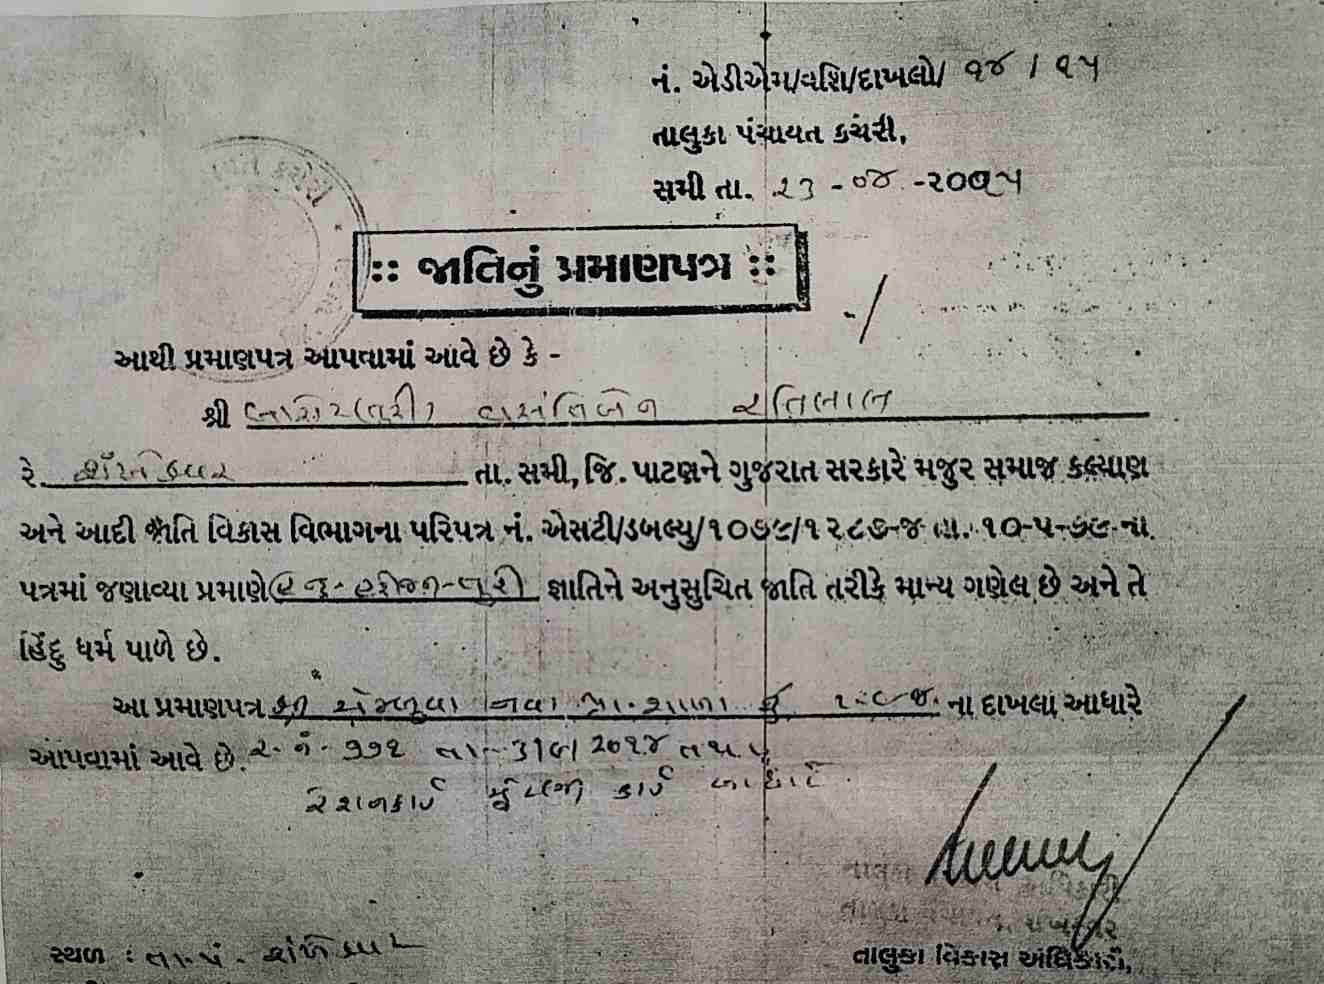 નં. એડીએમ/વશિ/દાખલો/ ૧૪ / ૧૫
તાલુકા પંચાયત કચેરી,
સમી તા. ૨૩ - ૦૪ - ૨૦૧૫
કચેરી
:: જાતિનું પ્રમાણપત્ર ::
આથી પ્રમાણપત્ર આપવામાં આવે છે કે -
શ્રી બારોટ(તુરી) વાસંતિબેન રતિલાલ
રે. શંખેશ્વર તા. સમી, જિ. પાટણને ગુજરાત સરકારે મજુર સમાજ કલ્યાણ
અને આદી જાતિ વિકાસ વિભાગના પરિપત્ર નં. એસટી/ડબલ્યુ/૧૦૭૯/૧૨૮૭-જ તા. ૧૦-૫-૭૯ ના
પત્રમાં જણાવ્યા પ્રમાણે હિન્દુ-હરીજન-તુરી જ્ઞાતિને અનુસુચિત જાતિ તરીકે માન્ય ગણેલ છે અને તે
હિંદુ ધર્મ પાળે છે.
આ પ્રમાણપત્ર શ્રી નવા પ્રા. શાળા નું ના દાખલા આધારે
આપવામાં આવે છે. ર. નં. ૧૧૨ તા. ૨૦૧૪ તથા
રેશનકાર્ડ ચૂંટણી કાર્ડ આધારે
તાલુકા
સ્થળ : તા. પં. શંખેશ્વર
તાલુકા વિકાસ અધિકારી,